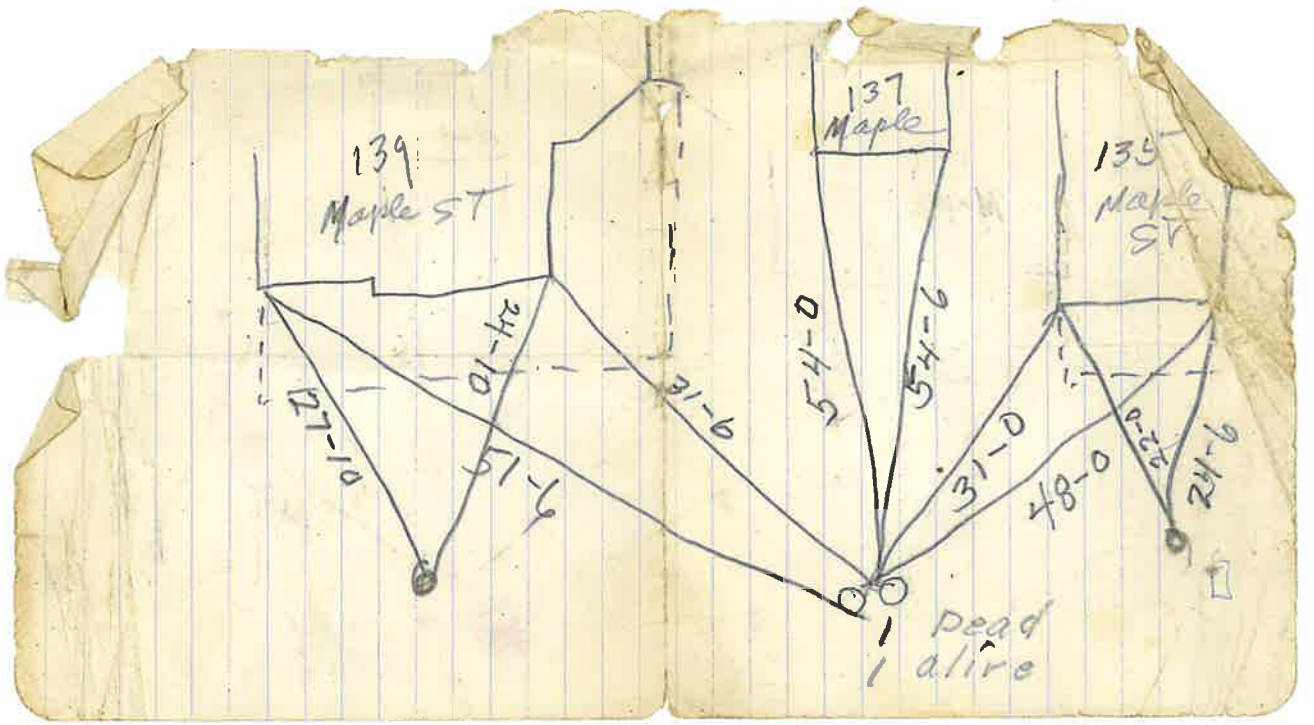 139
Maple ST
137
Maple
135
Maple
ST
27-10
24-10
51-6
54-0
54-6
31-0
48-0
22-0
24-6
Dead
alive